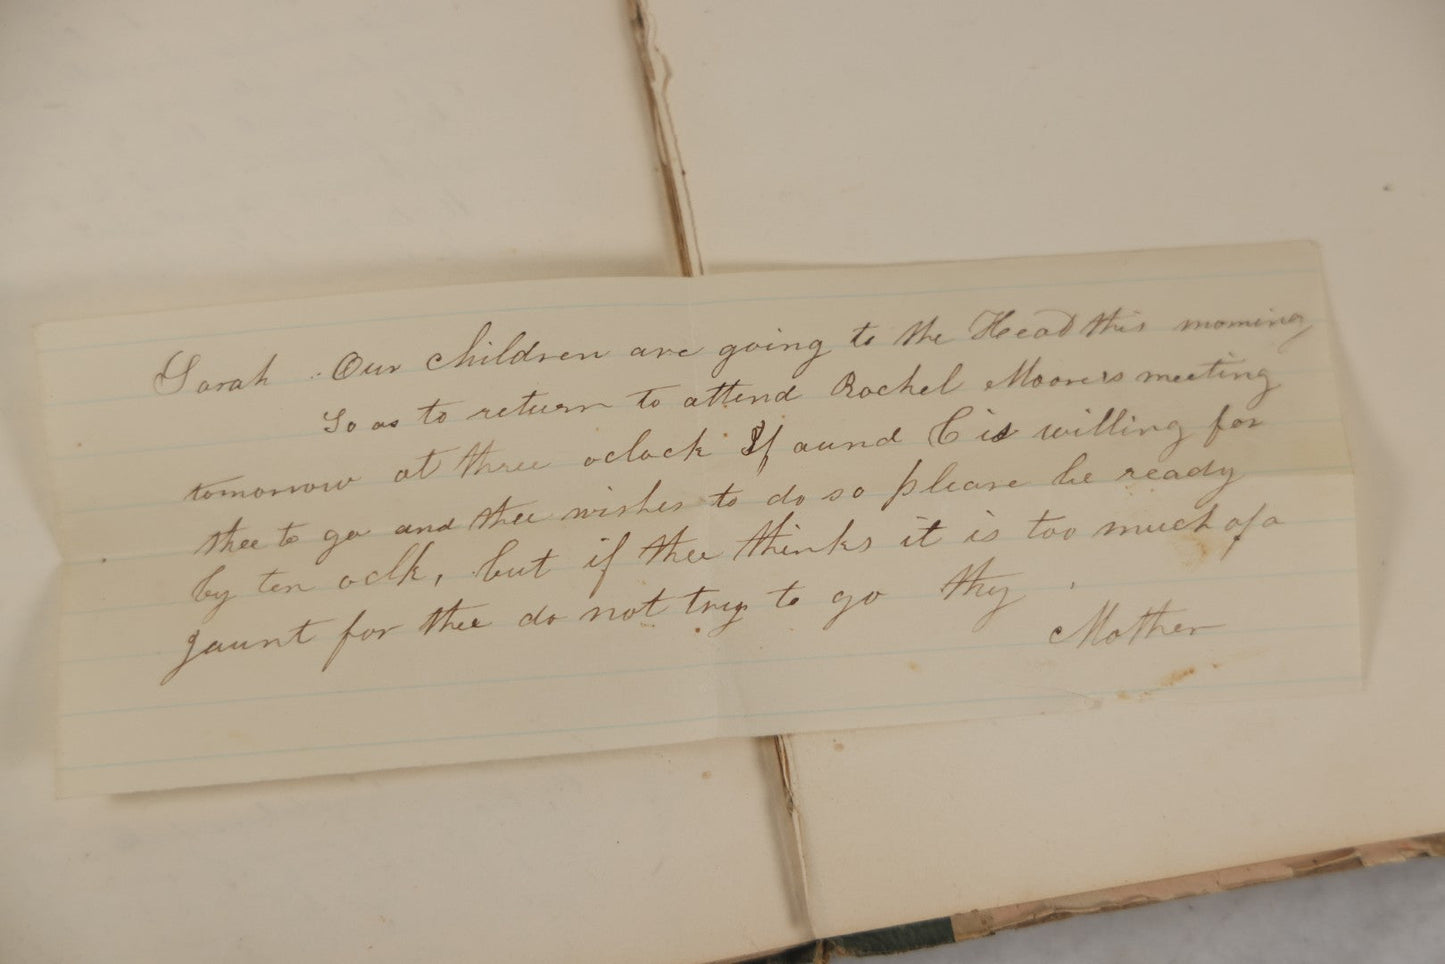 Sarah . Our children are going to the Head this morning
So as to return to attend Rachel Moore's meeting
tomorrow at three oclock If aund C is willing for
thee to go and thee wishes to do so please be ready
by ten oclk, but if thee thinks it is too much of a
jaunt for thee do not try to go thy
Mother